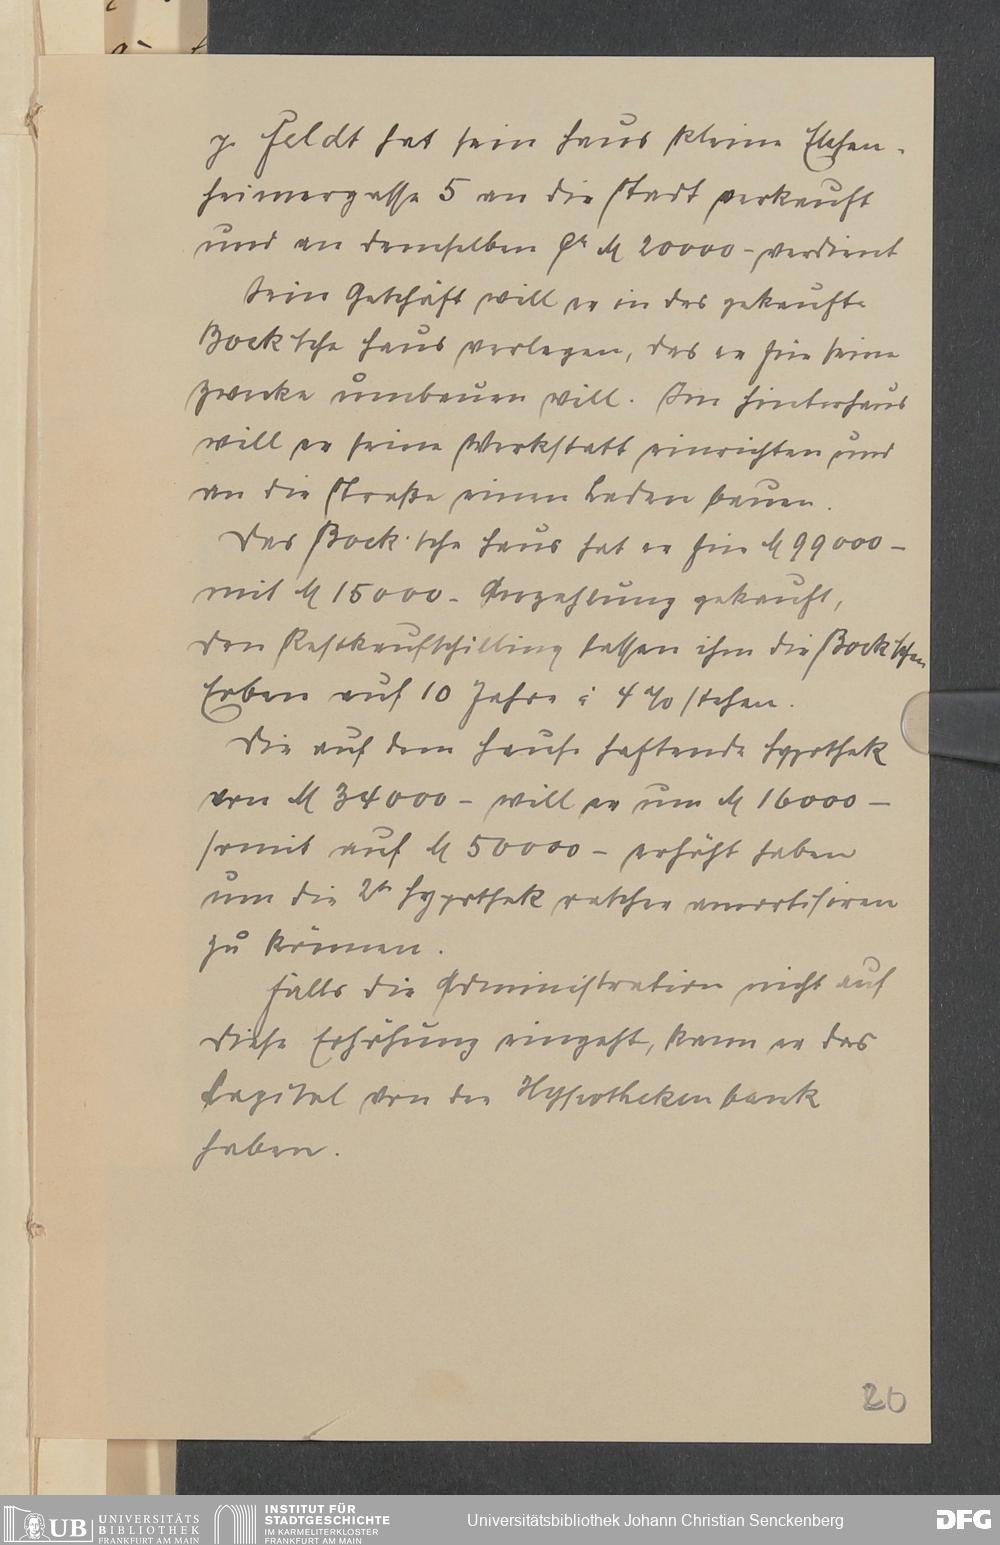 p. Feldt hat sein Haus kleine Eschen-
heimergasse 5 an die Stadt verkauft
und an demselben M 20000 - verdient
Sein Geschäft will er in das gekaufte
Bock'sche Haus verlegen, das er für seine
Zwecke umbauen will. Im Hinterhaus
will er seine Werkstatt einrichten und
an die Straße einen Laden bauen.
Das Bock'sche Haus hat er für M 99000 -
mit M 15000 - Anzahlung gekauft,
den Restkaufschilling lassen ihm die Bock'schen
Erben auf 10 Jahre à 4 % stehen.
Die auf dem Hause haftende Hypothek
von M 34000 - will er um M 16000 -
somit auf M 50000 - erhöht haben
um die 2te Hypothek rascher amortisiren
zu können.
Falls die Administration nicht auf
diese Erhöhung eingeht, kann er das
Capital von der Hypothekenbank
haben.
20
UB UNIVERSITÄTS
BIBLIOTHEK
FRANKFURT AM MAIN
INSTITUT FÜR
STADTGESCHICHTE
IM KARMELITERKLOSTER
FRANKFURT AM MAIN
Universitätsbibliothek Johann Christian Senckenberg
DFG